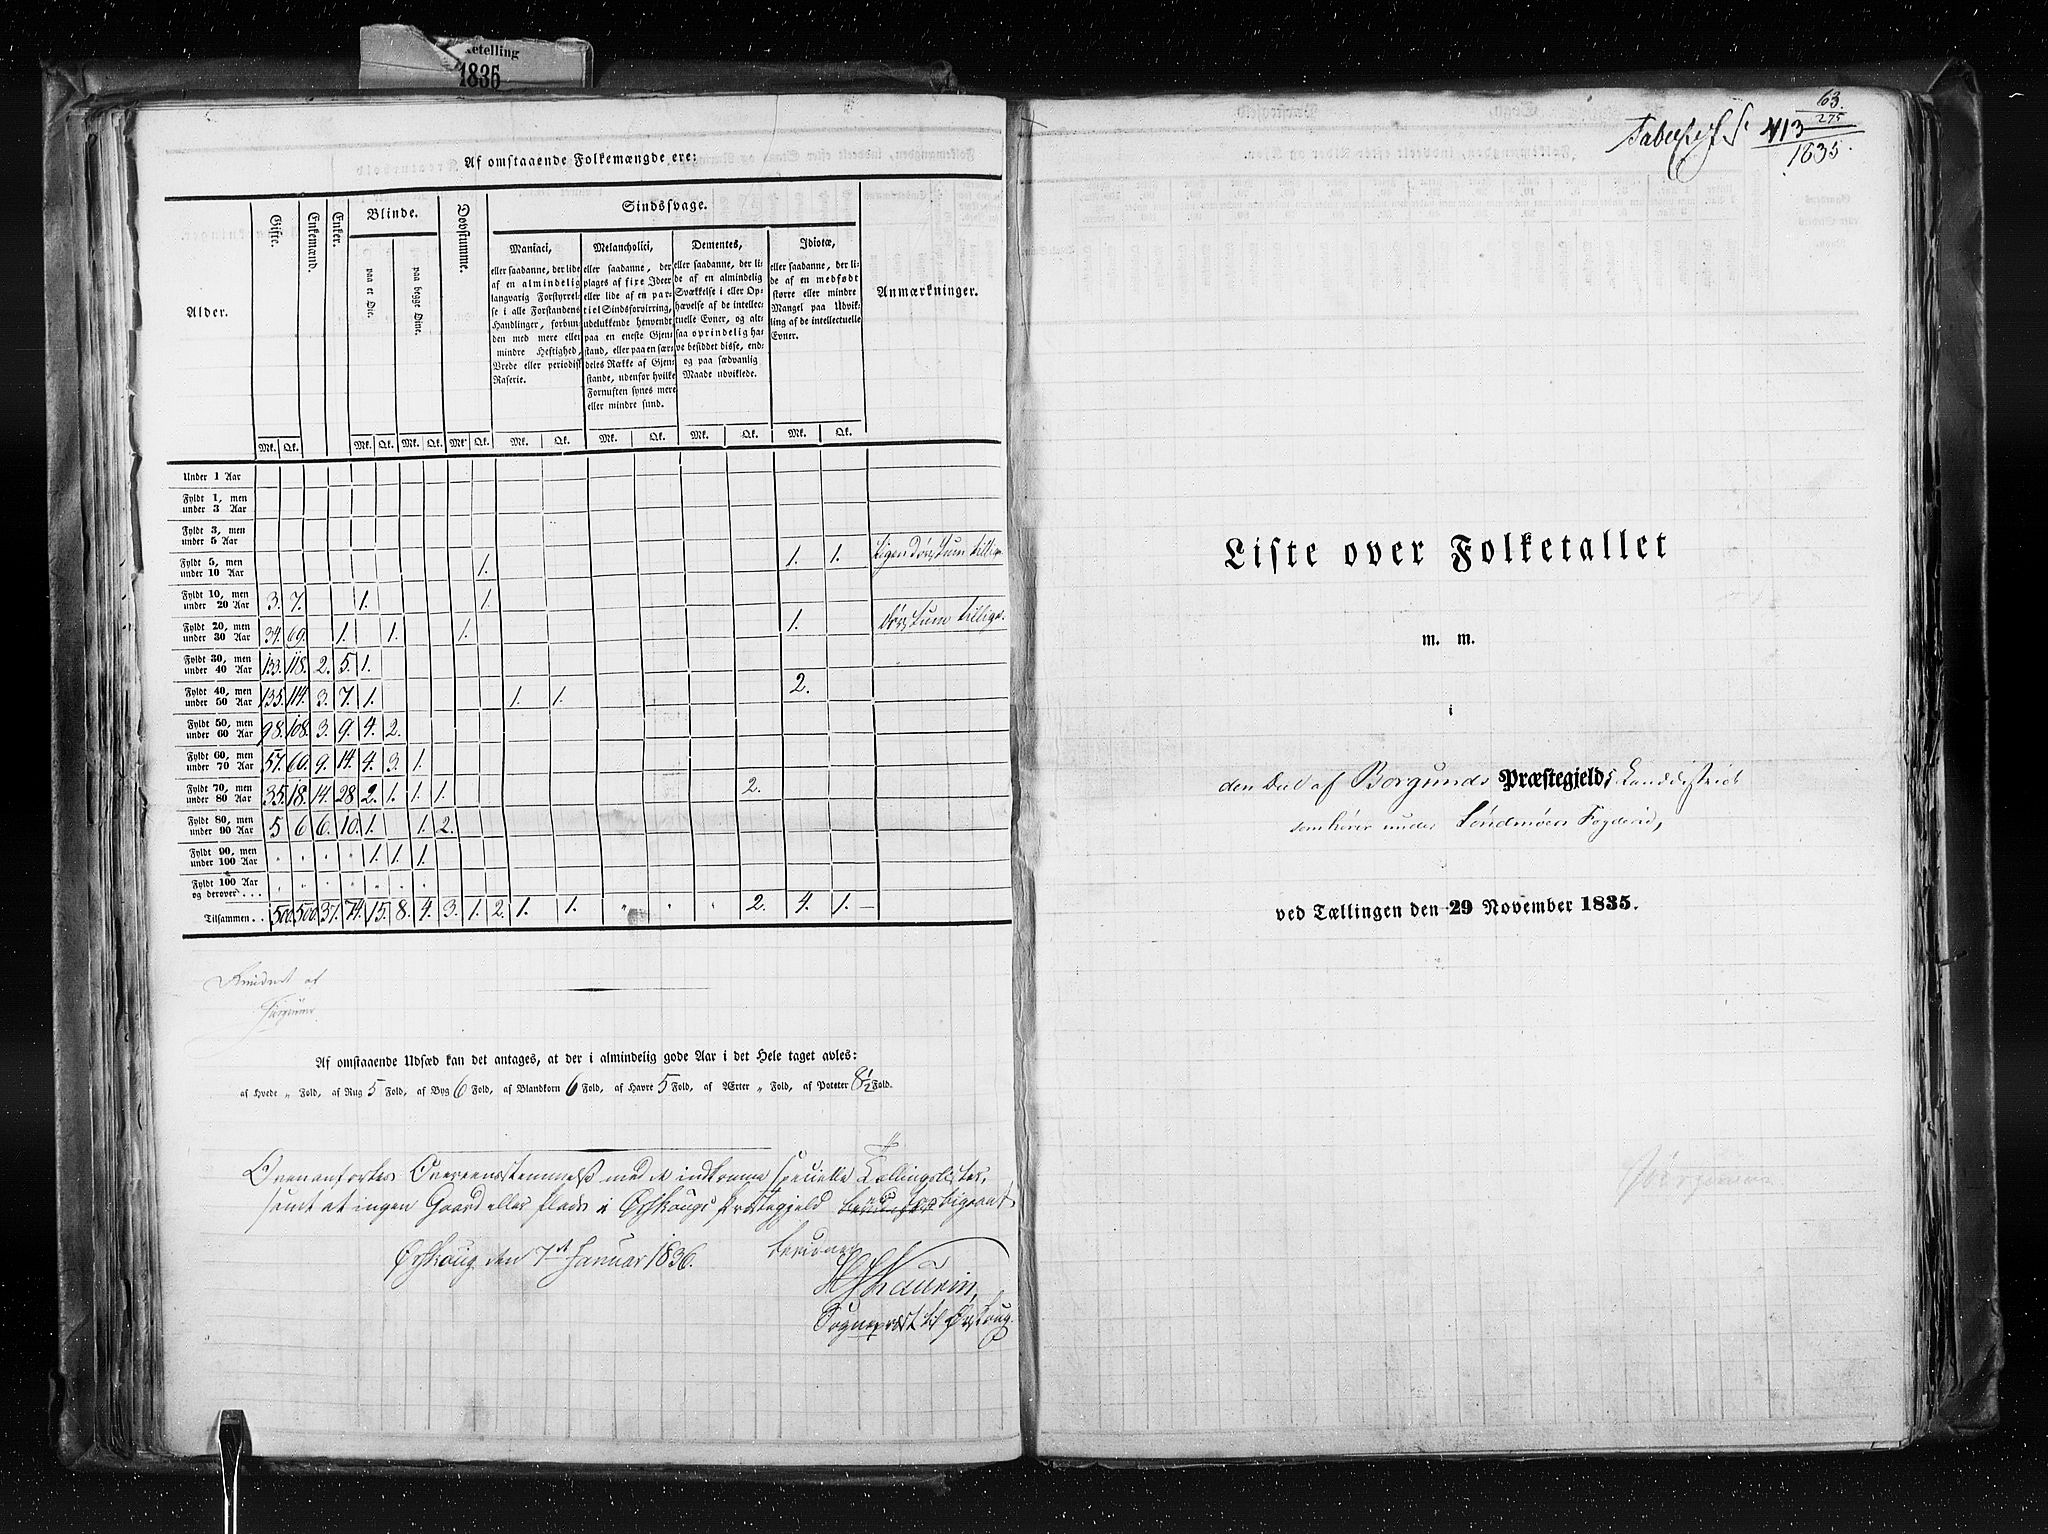 ketelling
1835
Af omstaaende Folkemængde ere:
Alder.
Gifte.
Enkemænd.
Enker.
Blinde.
paa et Øie.
paa begge Øine.
Døvstumme.
Sindssvage.
Maniaci,
eller saadanne, der lide
af en almindelig
langvarig Forstyrrel-
se i alle Forstandens
Handlinger, forbun-
den med mere eller
mindre Heftighed,
Vrede eller periodisk
Raserie.
Melancholici,
eller saadanne, der
plages af fixe Ideer
eller lide af en par-
tiel Sindsforvirring,
udelukkende henvendt
paa en eneste Gjen-
stand, eller paa en sær-
deles Række af Gjen-
stande, udenfor hvilke
Fornuften synes mere
eller mindre sund.
Dementes,
eller saadanne, der li-
de af en almindelig
Svækkelse i eller Op-
hævelse af de intellec-
tuelle Evner, og alt-
saa oprindelig ha-
ve besiddet disse, end-
og paa sædvanlig
Maade udviklede.
Idiotæ,
eller saadanne, der li-
de af en medfødt
større eller mindre
Mangel paa Udvik-
ling af de intellectuelle
Evner.
Anmærkninger.
Mk. Qk. Mk. Qk. Mk. Qk. Mk. Qk. Mk. Qk. Mk. Qk. Mk. Qk. Mk. Qk.
Under 1 Aar
Fyldt 1, men
under 3 Aar
Fyldt 3, men
under 5 Aar
Fyldt 5, men
under 10 Aar 1. 1. 1.
Fyldt 10, men
under 20 Aar 3. 7. 1. 1.
Fyldt 20, men
under 30 Aar 34. 69. 1. 1. 1. 1. døvstum tillige.
Fyldt 30, men
under 40 Aar 133. 118. 2. 5. 1.
Fyldt 40, men
under 50 Aar 135. 114. 3. 7. 1. 1. 1. 2.
Fyldt 50, men
under 60 Aar 98. 108. 3. 9. 4. 2.
Fyldt 60, men
under 70 Aar 57. 60. 9. 14. 4. 3. 1.
Fyldt 70, men
under 80 Aar 35. 18. 14. 28. 2. 1. 1. 1. 2.
Fyldt 80, men
under 90 Aar 5 6 6. 10. 1. 1. 2.
Fyldt 90, men
under 100 Aar " " " " 1. 1. 1.
Fyldt 100 Aar
og derover . . . " " " " " " "
Tilsammen . . 500 500 37. 74. 15. 8. 4. 3. 1. 2. 1. 1. " " " 2. 4. 1. –
af
Af omstaaende Udsæd kan det antages, at der i almindelig gode Aar i det Hele taget avles:
af Hvede " Fold, af Rug 5 Fold, af Byg 6 Fold, af Blandkorn 6 Fold, af Havre 5 Fold, af Ærter " Fold, af Poteter 8½ Fold.
Ovenanførtes Overeensstemmelse med de indkomne specielle Tællingslister,
samt at ingen Gaard eller Plads i Ørskougs Præstegjeld er forbigaaet
bevidner
Ørskoug den 7de Januar 1836.
Kaurin,
Sognepræst til Ørskoug.
63.
275
Tabel 413
1835.
Liste over Folketallet
m. m.
i
den Deel af Borgunds Præstegjelds Landdistrict
som hører under Søndmørs Fogderie,
ved Tællingen den 29 November 1835.